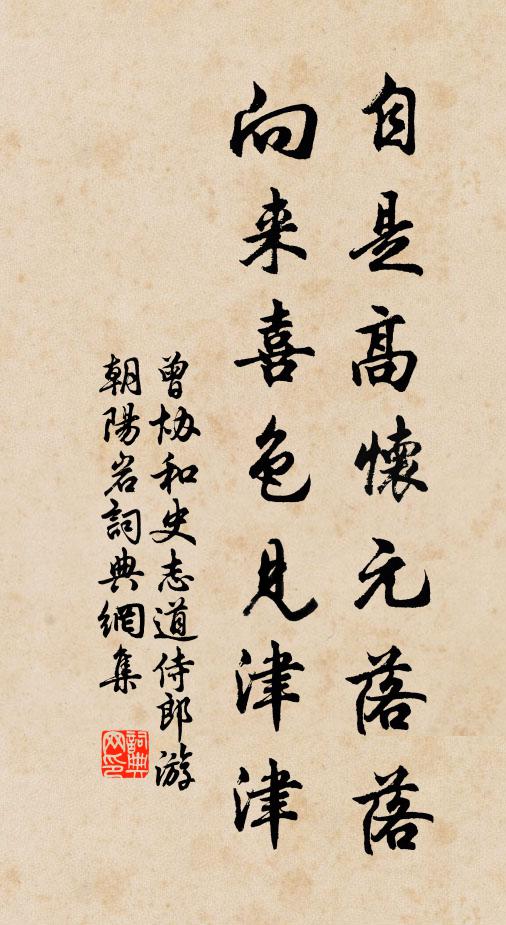 自是高懷元落落
向来喜色見津津
曾協和史志道侍郎游
朝陽岩詞典網集
詞典
网印